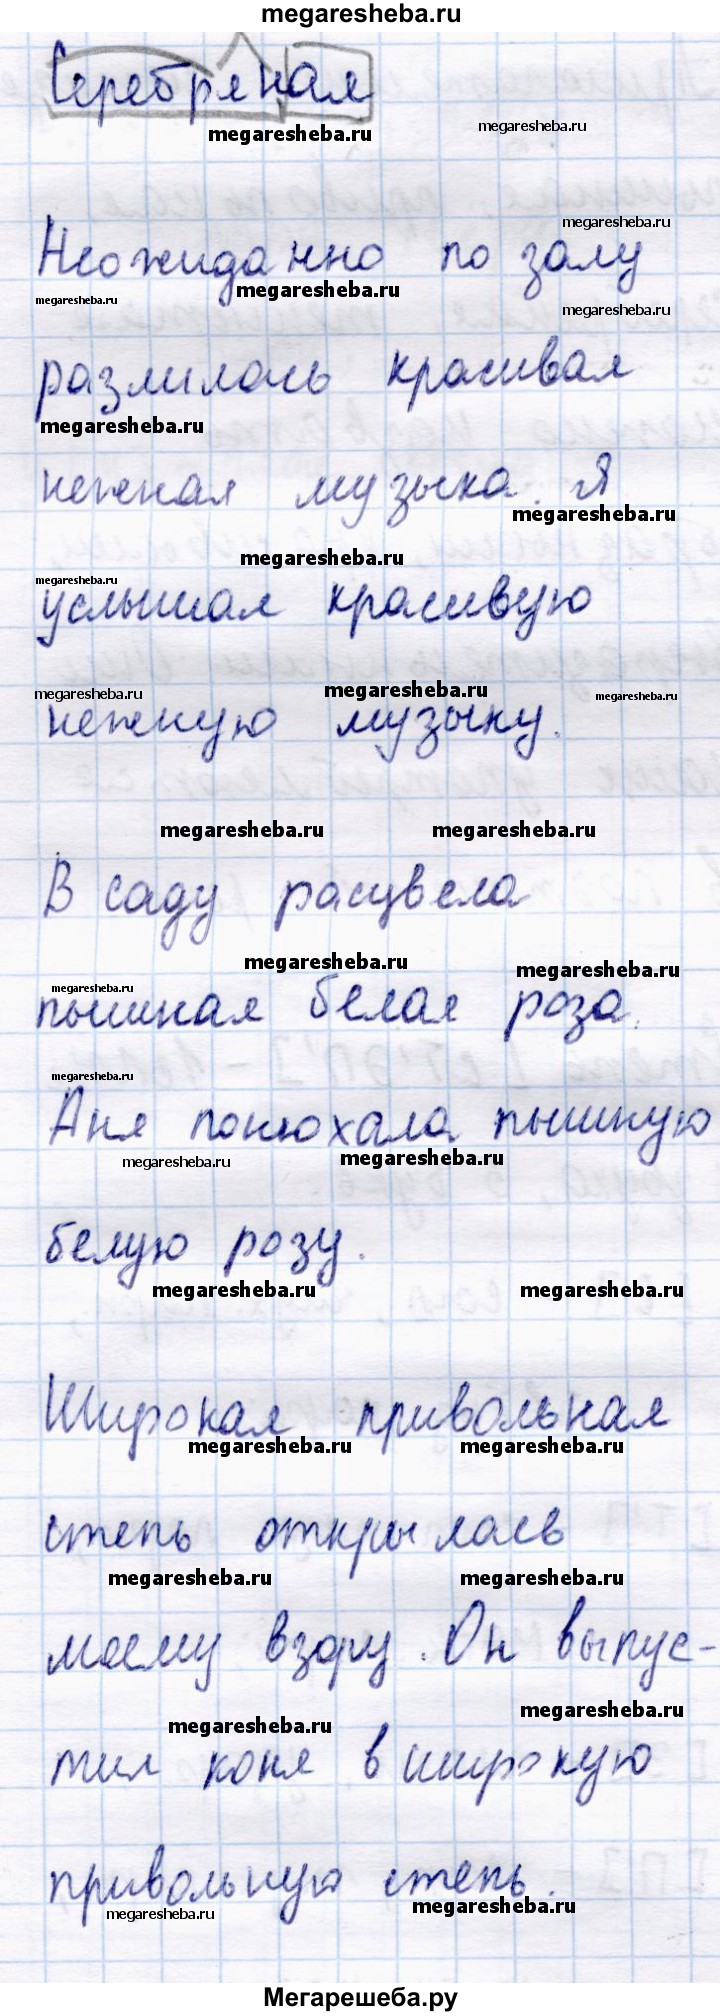 megaresheba.ru
Серебряная
megaresheba.ru megaresheba.ru
megaresheba.ru
Неожиданно по залу
megaresheba.ru megaresheba.ru
megaresheba.ru
разлилась красивая
megaresheba.ru
нежная музыка. Я
megaresheba.ru
megaresheba.ru
megaresheba.ru
услышал красивую
megaresheba.ru megaresheba.ru megaresheba.ru
нежную музыку.
megaresheba.ru megaresheba.ru
В саду расцвела
megaresheba.ru megaresheba.ru
megaresheba.ru
пышная белая роза.
megaresheba.ru
Аня понюхала пышную
megaresheba.ru megaresheba.ru
белую розу.
megaresheba.ru megaresheba.ru
Широкая привольная
megaresheba.ru megaresheba.ru
степь открылась
megaresheba.ru megaresheba.ru
моему взору. Он выпус-
megaresheba.ru megaresheba.ru
тил коня в широкую
привольную степь.
megaresheba.ru megaresheba.ru
Мегарешеба.ру